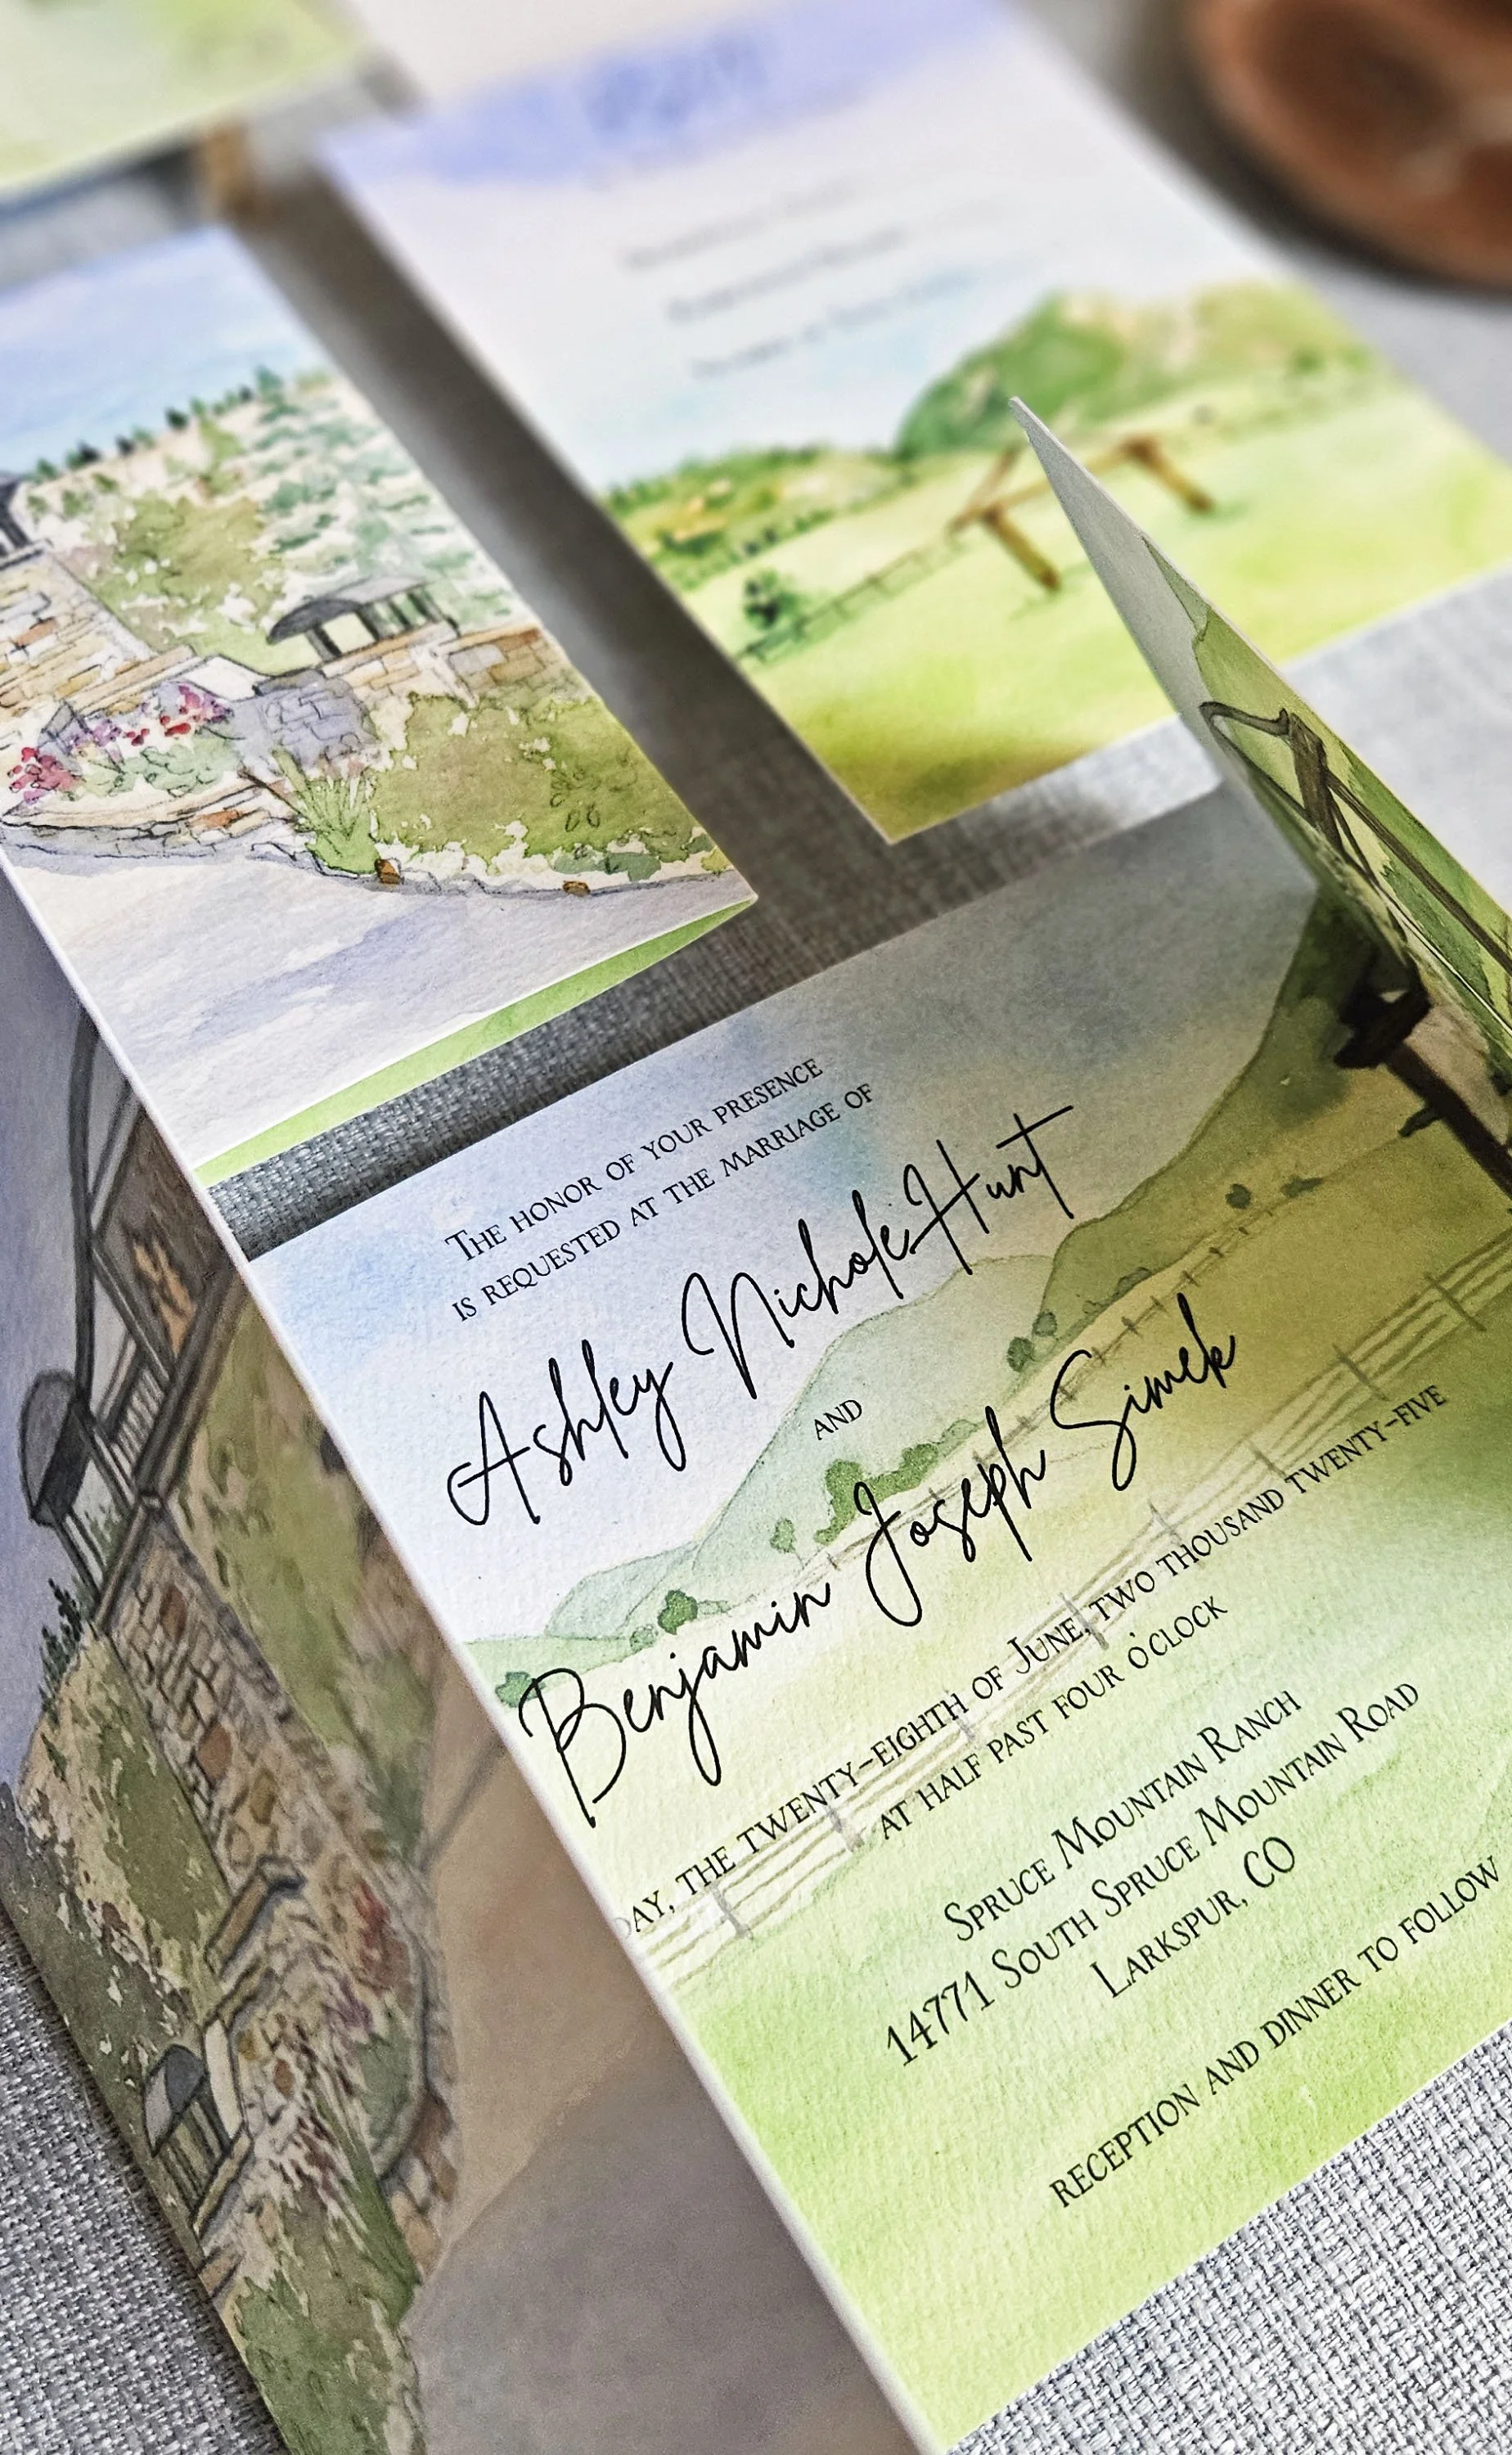 The honor of your presence
is requested at the marriage of
Ashley Nichole Hunt
and
Benjamin Joseph Simek
day, the twenty-eighth of June, two thousand twenty-five
at half past four o'clock
Spruce Mountain Ranch
14771 South Spruce Mountain Road
Larkspur, CO
reception and dinner to follow